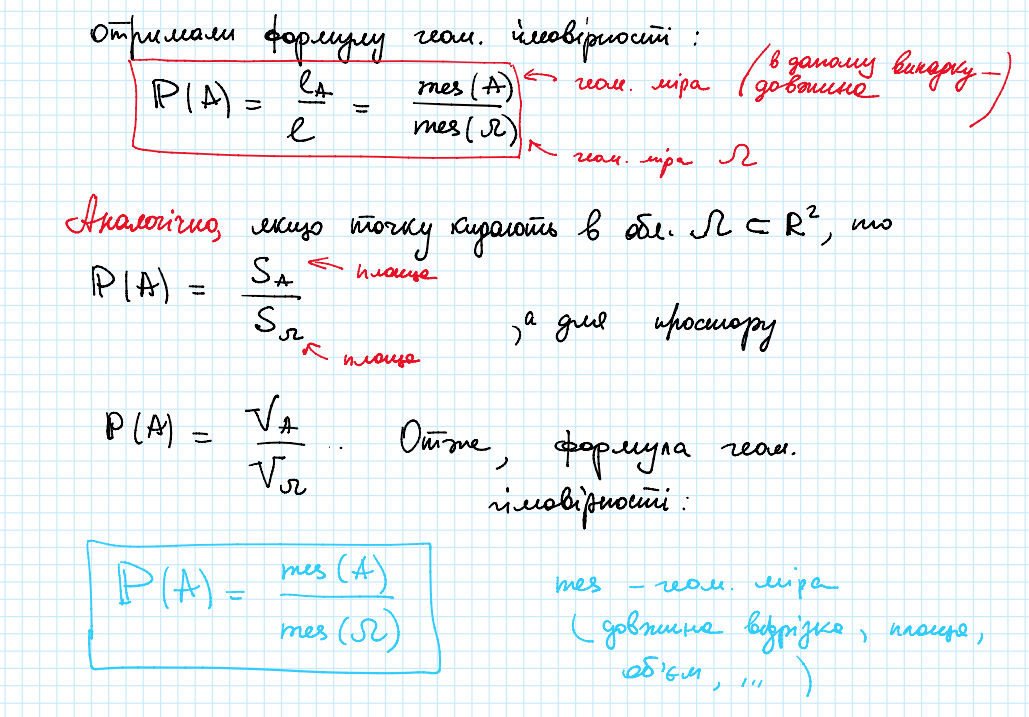 отримали формулу геом. ймовірності :
P(A) = ℓ_A / ℓ = mes(A) / mes(Ω) ← геом. міра (в даному випадку – довжина)
← геом. міра Ω
Аналогічно, якщо точку кидають в обл. Ω ⊂ R², то
P(A) = S_A / S_Ω ← площа
, а для простору
← площа
P(A) = V_A / V_Ω . Отже, формула геом.
ймовірності :
P(A) = mes(A) / mes(Ω)
mes – геом. міра
(довжина відрізка, площа,
об'єм, ...)